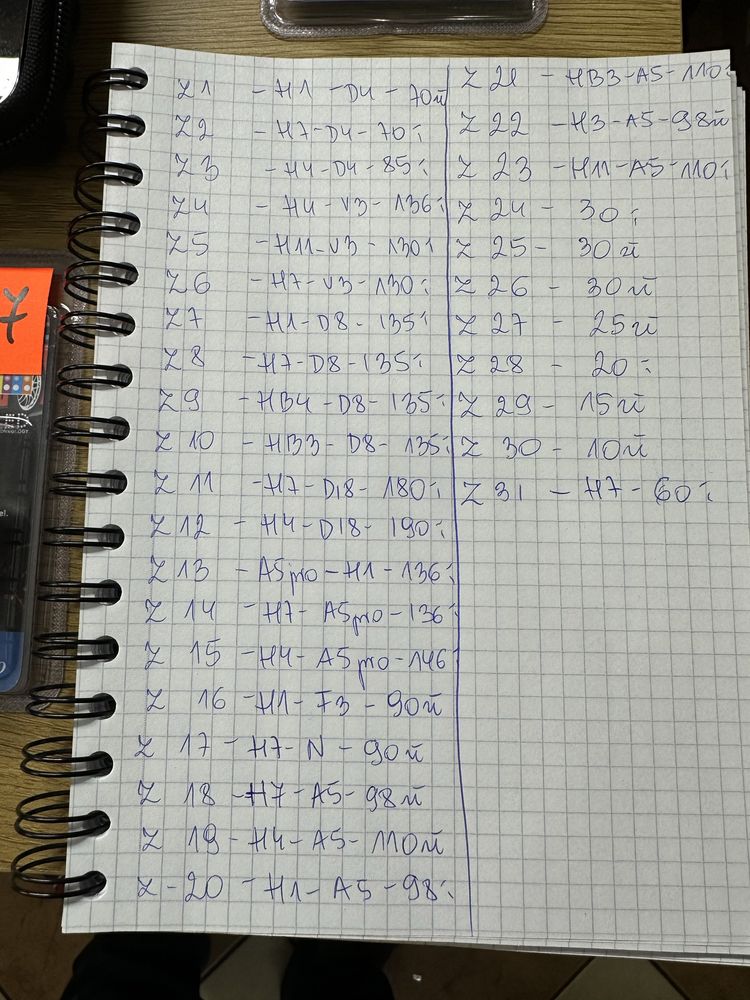 Z1 - H1 - D4 - 70й
Z2 - H7-D4-70й
Z3 - H4-D4-85й
Z4 - H4-V3-136й
Z5 - H11-V3-130й
Z6 - H7-V3-130й
Z7 - H1-D8-135й
Z8 - H7-D8-135й
Z9 - HB4-D8-135й
Z10 - HB3-D8-135й
Z 11 - H7-D18-180й
Z12 - H4-D18-190й
Z13 - A5pro-H1-136й
Z 14 - H7-A5pro-136й
Z 15 - H4-A5pro-146
Z 16 - H1-F3-90й
Z 17 - H7-N-90й
Z 18 - H7-A5-98й
Z 19 - H4-A5-110й
Z-20 - H1-A5-98й
Z 21 - HB3-A5-110й
Z 22 - H3-A5-98й
Z 23 - H11-A5-110й
Z 24 - 30й
Z 25 - 30й
Z 26 - 30й
Z 27 - 25й
Z 28 - 20й
Z 29 - 15й
Z 30 - 10й
Z 31 - H7-60й
7